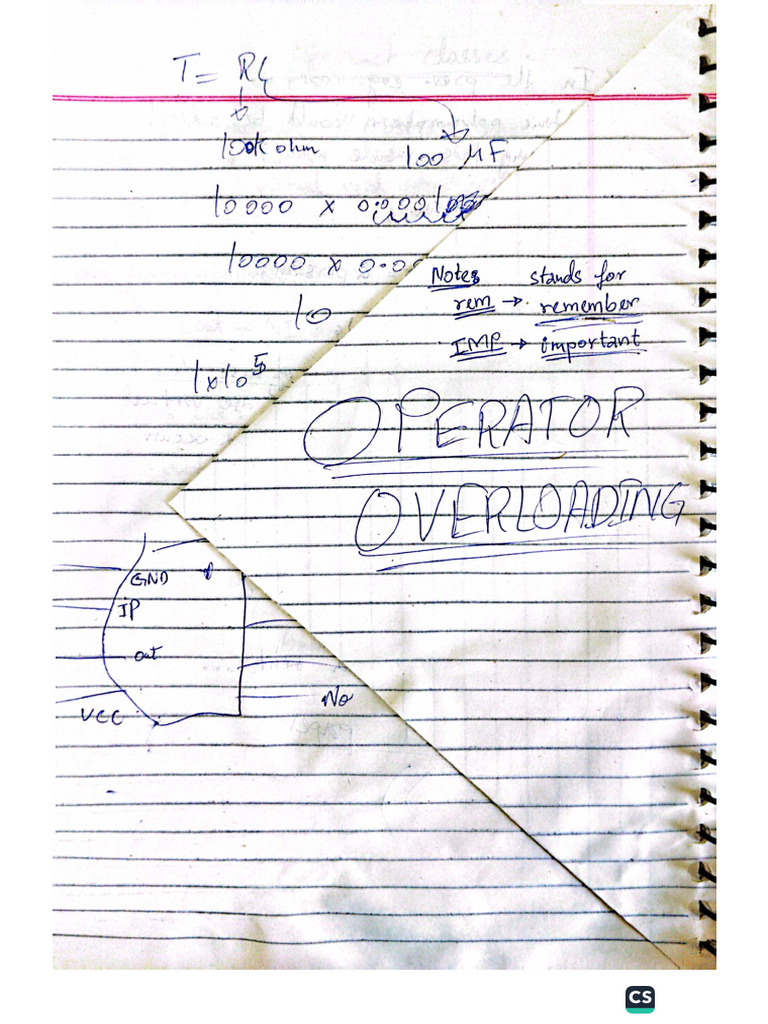 T = RC
100K ohm
100 μF
10000 x 0.00010
10000 x 0.0
10
1x10^5
Notes stands for
rem → remember
IMP → important
OPERATOR
OVERLOADING
GND
IP
out
VCC
No
CS